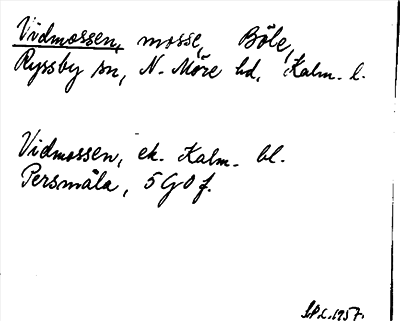 Vidmossen, mosse, Böle,
Ryssby sn, N. Möre hd, Kalm. l.
Vidmossen, ek. Kalm. bl.
Persmåla, 5G0f.
S.P.L. 1957.